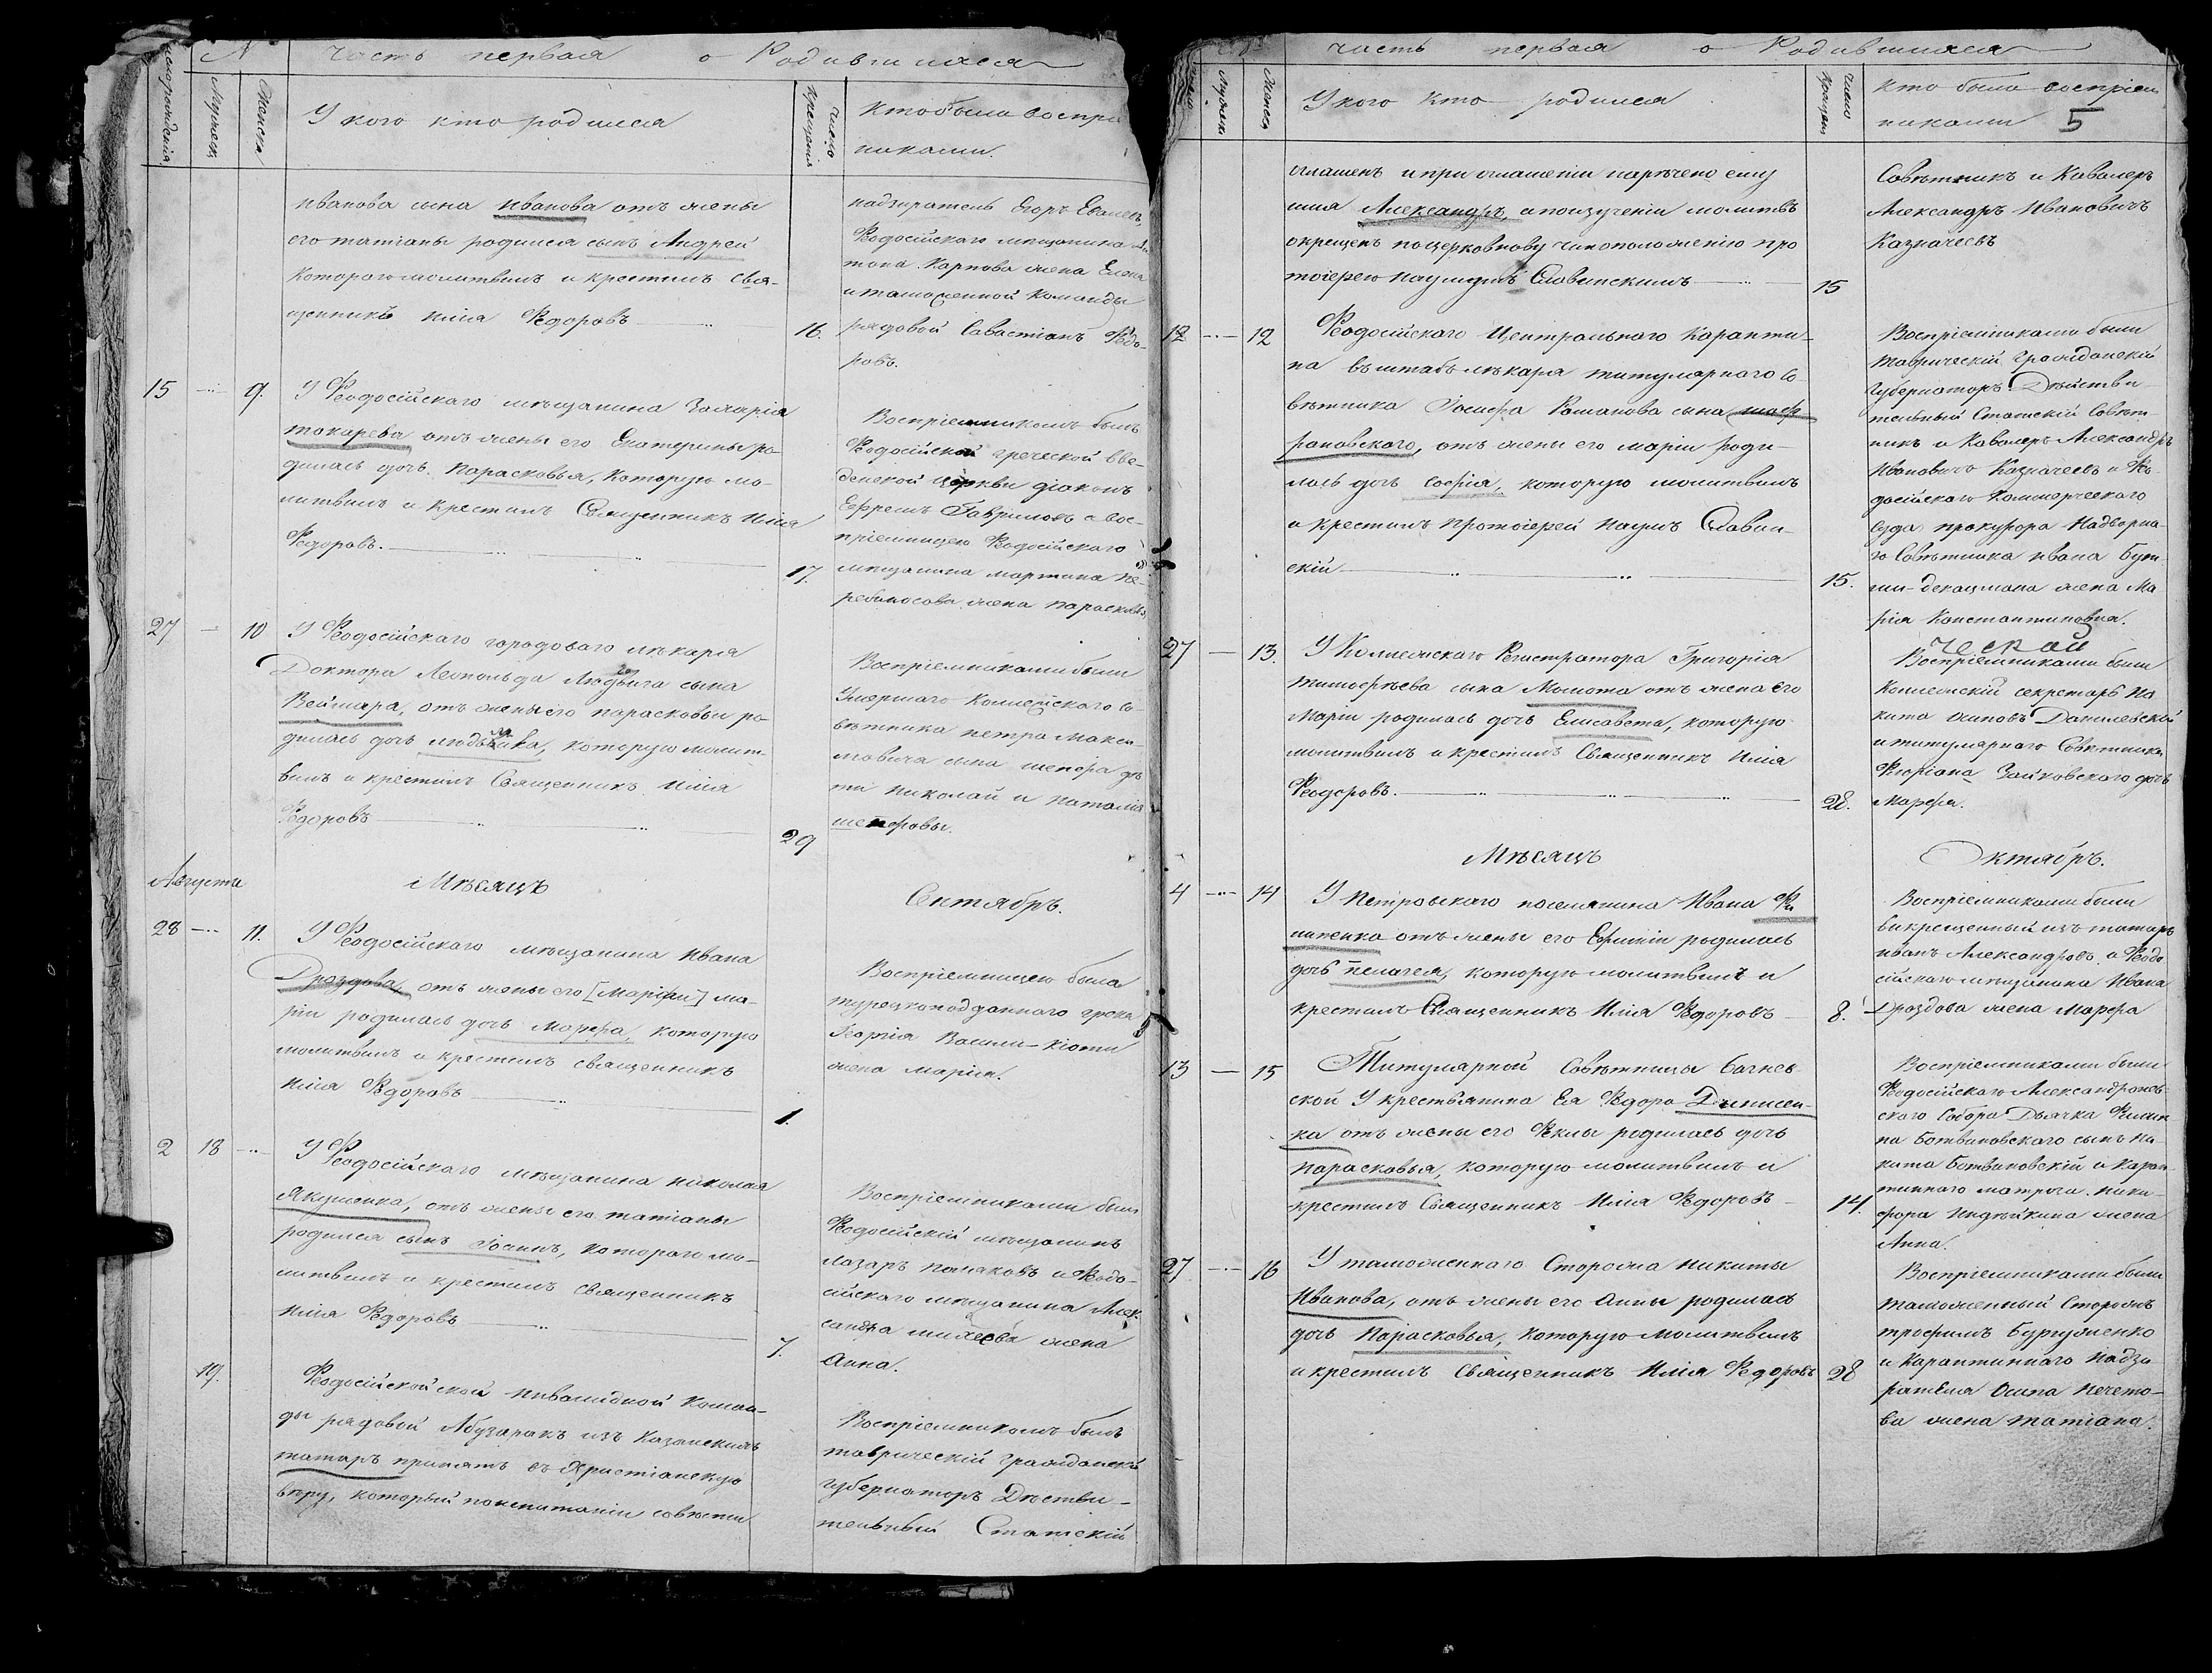 № Часть первая о Родившихся
Число рождения
Мужеск
Женска
У кого кто родился
Число крещенія
Кто были воспри
никами.
Иванова сына Иванова отъ жены
его татіаны родился сынъ Андрей
Котораго молитвилъ и крестилъ Свя-
щенникъ Илія Федоровъ
16.
надзиратель Егоръ
Феодосійскаго мѣщанина
Карпова жена Елена
и таможенной Команды
рядовой Савастіанъ Федо-
ровъ.
15 9. У Феодосійскаго мѣщанина Захарія
токарева отъ жены его Екатерины ро-
дилась дочь Парасковья, Которую мо-
литвилъ и крестилъ Священникъ Илія
Федоровъ.
17.
Воспріемникомъ былъ
Феодосійской греческой Вве-
денской церкви діаконъ
Ефремъ Гавриловъ и вос-
пріемницею Феодосійскаго
мѣщанина мартина Пе-
ребиносова жена параскева
27 10 У Феодосійскаго городоваго лѣкаря
Доктора Леопольда Людвига сына
Веймара, отъ жены его парасковьи ро-
дилась дочь людвика, которую молит-
вилъ и крестилъ Священникъ Илія
Федоровъ
29
Воспріемниками были
Умершаго Коллежскаго Со-
вѣтника петра Макси-
мовича сына шепфра дѣ-
ти николай и наталія
шепфровы.
Августа Мѣсяцъ Сентябрь.
28 11. У Феодосійскаго мѣщанина Ивана
Дроздова, отъ жены его [Маріи] ма-
ріи родилась дочь Марфа, которую
молитвилъ и крестилъ священникъ
Илія Федоровъ
1.
Воспріемницею была
турецкоподданнаго грека
Георгія Васили-Кіоти
жена Марія.
2 18 У Феодосійскаго мѣщанина николая
Якушенка, отъ жены его татіаны
родился сынъ Іоаннъ, котораго мо-
литвилъ и крестилъ священникъ
Илія Федоровъ
7.
Воспріемниками были
Феодосійскій мѣщанинъ
лазарь поляковъ и Феодо-
сійскаго мѣщанина Алек-
сандра жена
Анна.
19. Феодосійской Инвалидной Коман-
ды рядовой Абузаракъ изъ Казанскихъ
татаръ принятъ въ Христіанскую
вѣру, который по испытаніи совѣсти
Воспріемникомъ былъ
таврическій гражданскій
губернаторъ Дѣстви-
тельный Статскій
часть первая о Родившихся
Мужеска
Женска
У кого кто родился
Число крещен
Кто были воспріем
никами 5
оглашенъ и при оглашеніи наречено ему
имя Александръ, а по изученіи молитвъ
окрещенъ по церковному чиноположенію про
тоіерею Наумомъ Славинскимъ
15
Совѣтникъ и Кавалеръ
Александръ Ивановичъ
Казначеевъ
12 12 Феодосійскаго Центральнаго Каранти-
на въ штабъ лѣкаря титулярнаго со
вѣтника Іосифа Романова сына шаф
рановскаго, отъ жены его маріи роди-
лась дочь Софія, которую молитвилъ
и крестилъ Протоіерей Наумъ Славин-
скій
15.
Воспріемниками были
таврическій гражданскій
губернаторъ Дѣйстви-
тельный Статскій Совѣт-
никъ и Кавалеръ Александръ
Ивановичъ Казначеевъ и Фео-
досійскаго Коммерческаго
Суда прокурора Надворна-
го Совѣтника ивана
жена Ма
рія Константиновна.
27 13. У Коллежскаго Регистратора Григорія
тимофѣева сына Момота отъ жена его
Маріи родилась дочь Елисавета, которую
молитвилъ и крестилъ Священникъ Илія
Феодоровъ.
28.
Воспріемниками были
Коллежскій секретарь Ни
кита Осиповъ Данилевскій
и титулярнаго Совѣтника
Флоріана Зайковскаго дочь
Марфа.
Мѣсяцъ Октябрь.
4 14 У Петровскаго поселянина Ивана Фи
липенка отъ жены его Ефиміи родилась
дочь пелагея, которую молитвилъ и
крестилъ Священникъ Илія Федоровъ
8.
Воспріемниками были
выкрещенный изъ татаръ
иванъ Александровъ и Феодо-
сійскаго мѣщанина Ивана
Дроздова жена Марфа
13 15 Титулярной Совѣтницы
ской У крестьянина Ея Федора Динисен-
ка отъ жены его Феклы родилась дочь
парасковья, которую молитвилъ и
крестилъ Священникъ Илія Федоровъ
14.
Воспріемниками были
Феодосійскаго Александровъ-
скаго Собора Дьячка Филип
па Ботвиновскаго сынъ Ни-
кита Ботвиновскій и Каран-
тиннаго матроса ники-
фора жена
Анна.
27 16 У таможеннаго Сторожа никиты
Иванова, отъ жены его Анны родилась
дочь Парасковья, которую молитвилъ
и крестилъ Священникъ Илія Федоровъ
28
Воспріемниками были
таможенный Сторожъ
трофимъ
и Карантиннаго Надзи
рателя Осипа Печето-
ва жена татіана.